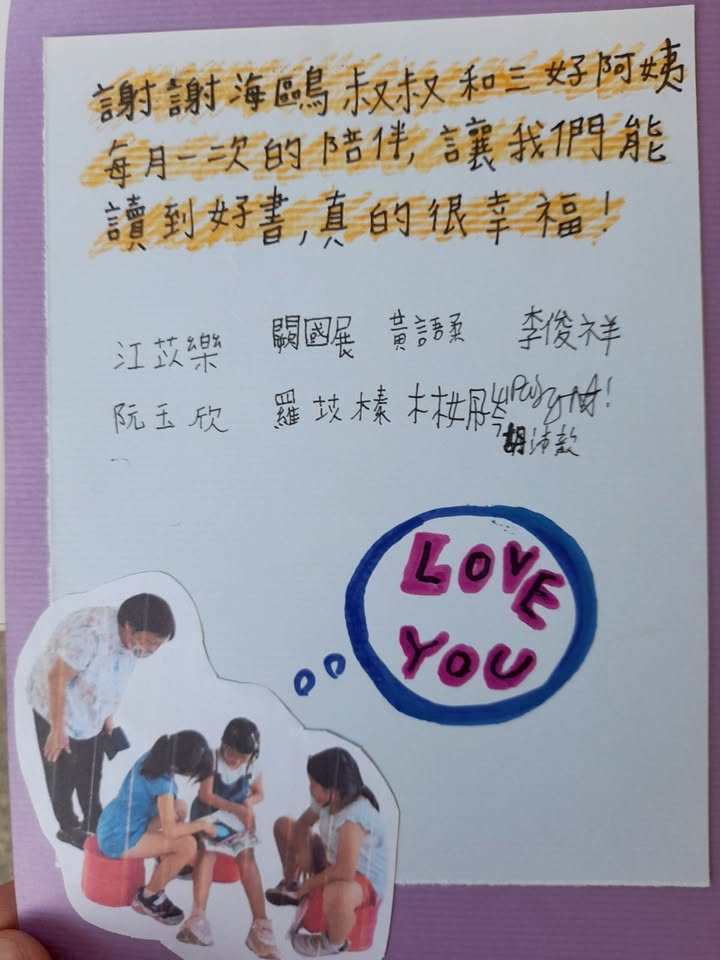 謝謝海鷗叔叔和三好阿姨
每月一次的陪伴,讓我們能
讀到好書,真的很幸福!
江苡樂 闕國展 黃語柔 李俊祥
阮玉欣 羅苡榛 林妏
胡沛
LOVE
YOU